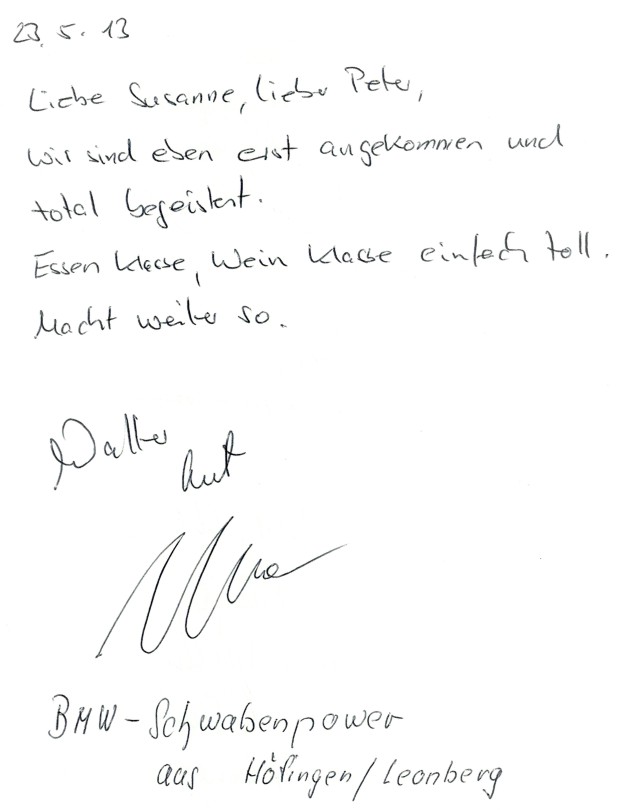 23.5.13
Liebe Susanne, lieber Peter,
wir sind eben erst angekommen und
total begeistert.
Essen klasse, Wein klasse einfach toll.
Macht weiter so.
Walter
BMW-Schwabenpower
aus Höfingen/Leonberg